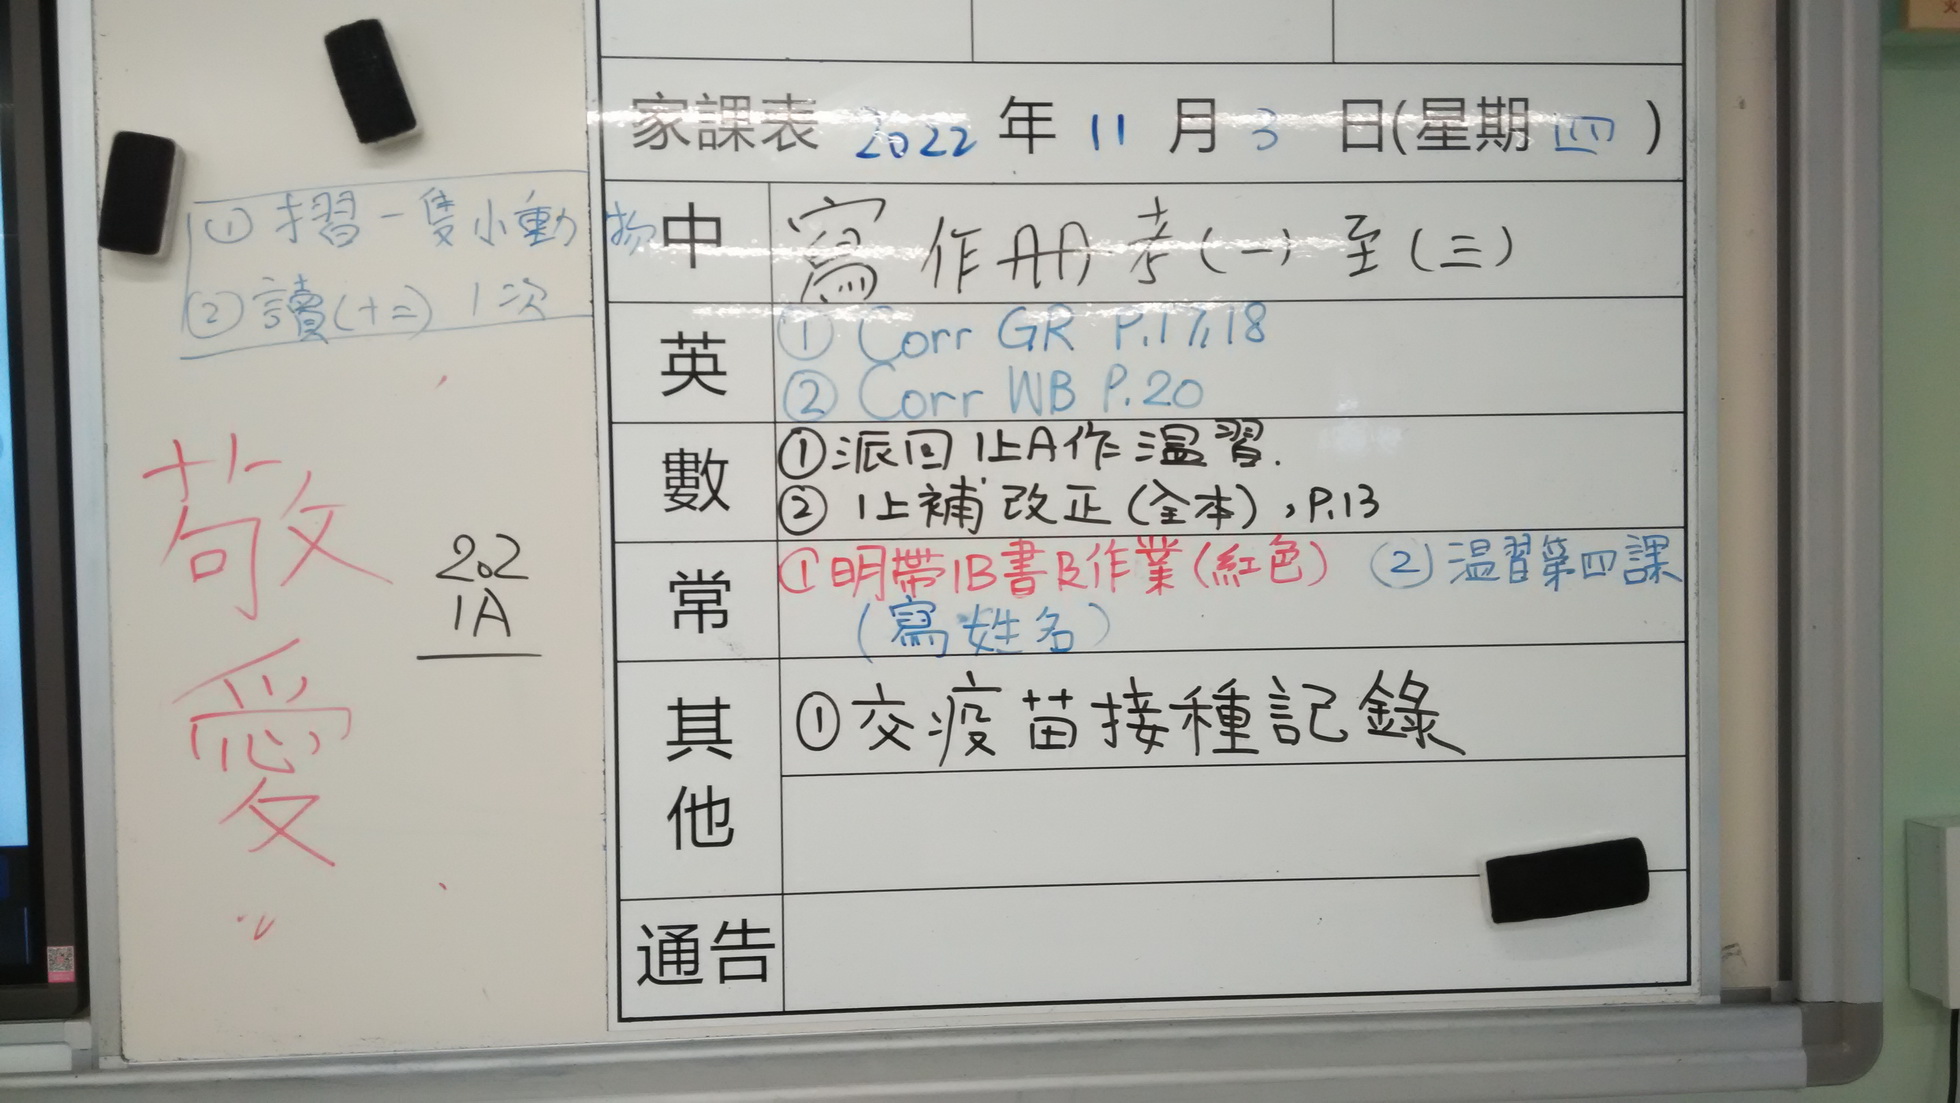 家課表 2022 年 11 月 3 日(星期 四 )
①摺一隻小動物
②讀(十二) 1次
敬愛
202
1A
中 寫作册考(一)至(三)
英 ① Corr GR P.17,18
② Corr WB P.20
數 ①派回1上A作溫習.
② 1上補改正(全本),P.13
常 ①明帶1B書B作業(紅色) ②溫習第四課
(寫姓名)
其他 ①交疫苗接種記錄
通告